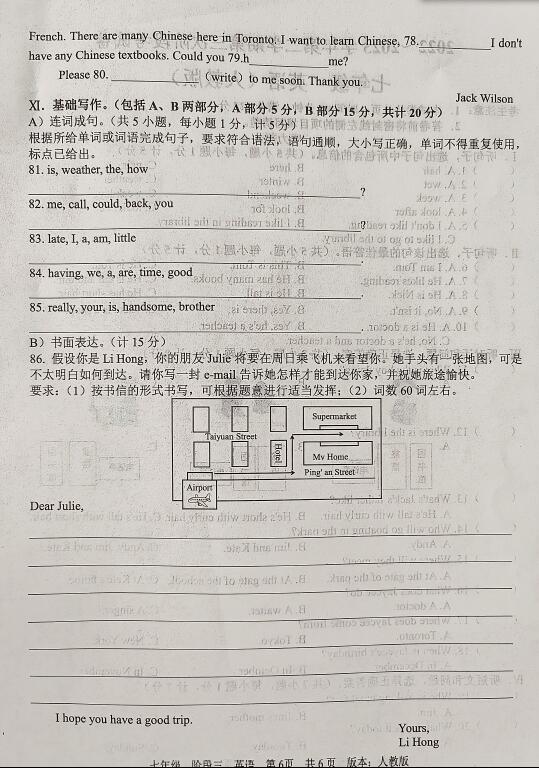 French. There are many Chinese here in Toronto. I want to learn Chinese, 78.________I don't
have any Chinese textbooks. Could you 79.h____________me?
Please 80. ____________ (write) to me soon. Thank you.
Jack Wilson
XI. 基础写作。(包括 A、B 两部分, A 部分 5 分, B 部分 15 分, 共计 20 分)
A）连词成句。(共 5 小题, 每小题 1 分, 计 5 分)
根据所给单词或词语完成句子, 要求符合语法, 语句通顺, 大小写正确, 单词不得重复使用,
标点已给出。
81. is, weather, the, how
____________?
82. me, call, could, back, you
____________?
83. late, I, a, am, little
____________.
84. having, we, a, are, time, good
____________.
85. really, your, is, handsome, brother
____________.
B）书面表达。(计 15 分)
86. 假设你是 Li Hong, 你的朋友 Julie 将要在周日乘飞机来看望你。她手头有一张地图, 可是
不太明白如何到达。请你写一封 e-mail 告诉她怎样才能到达你家, 并祝她旅途愉快。
要求:（1）按书信的形式书写, 可根据题意进行适当发挥;（2）词数 60 词左右。
Supermarket
Taiyuan Street
Hotel
My Home
Ping' an Street
Airport
Dear Julie,
I hope you have a good trip.
Yours,
Li Hong
七年级 阶段三 英语 第6页 共6页 版本: 人教版